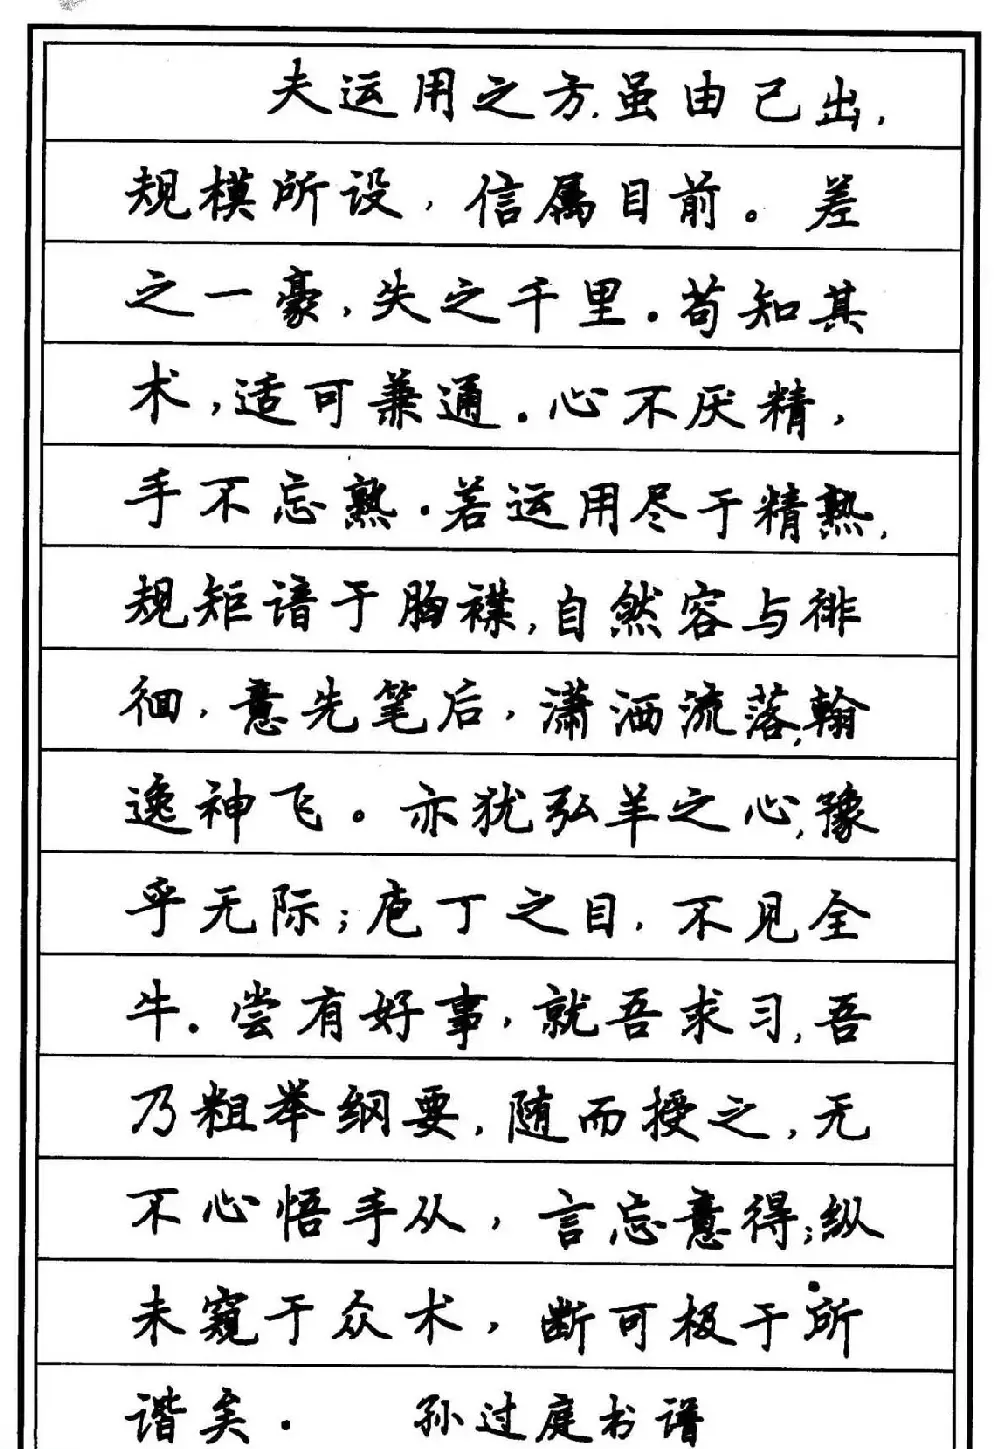 夫运用之方,虽由己出,
规模所设,信属目前。差
之一豪,失之千里。苟知其
术,适可兼通。心不厌精,
手不忘熟。若运用尽于精熟,
规矩谙于胸襟,自然容与徘
徊,意先笔后,潇洒流落,翰
逸神飞。亦犹弘羊之心,豫
乎无际;庖丁之目,不见全
牛。尝有好事,就吾求习,吾
乃粗举纲要,随而授之,无
不心悟手从,言忘意得;纵
未窥于众术,断可极于所
诣矣。 孙过庭书谱